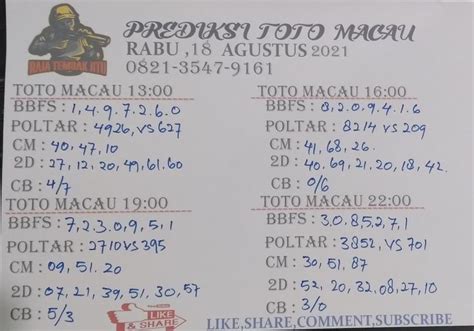 PREDIKSI TOTO MACAU
RABU ,18 AGUSTUS 2021
0821-3547-9161
RAJA TEMBAK JITU
TOTO MACAU 13:00
BBFS : 1,4.9.7.2.6.0
POLTAR : 4926,VS 627
CM : 40,47,10
2D : 27,12.20,49,61.60
CB : 4/7
TOTO MACAU 16:00
BBFS : 8,2.0.9.4.1.6
POLTAR : 8214 VS 209
CM : 41,68,26.
2D : 40.69,21.20,18,42.
CB : 0/6
TOTO MACAU 19:00
BBFS : 7,2.3.0,9,5,1
POLTAR : 2710 VS 395
CM : 09,51.20
2D : 07,21,39,51.30,57
CB : 5/3
TOTO MACAU 22:00
BBFS : 3.0.8,5,2,7,1
POLTAR : 3852, VS 701
CM : 30,51,87
2D : 52,20,32.08,27,10
CB : 3/0
LIKE
& SHARE
LIKE,SHARE,COMMENT,SUBSCRIBE